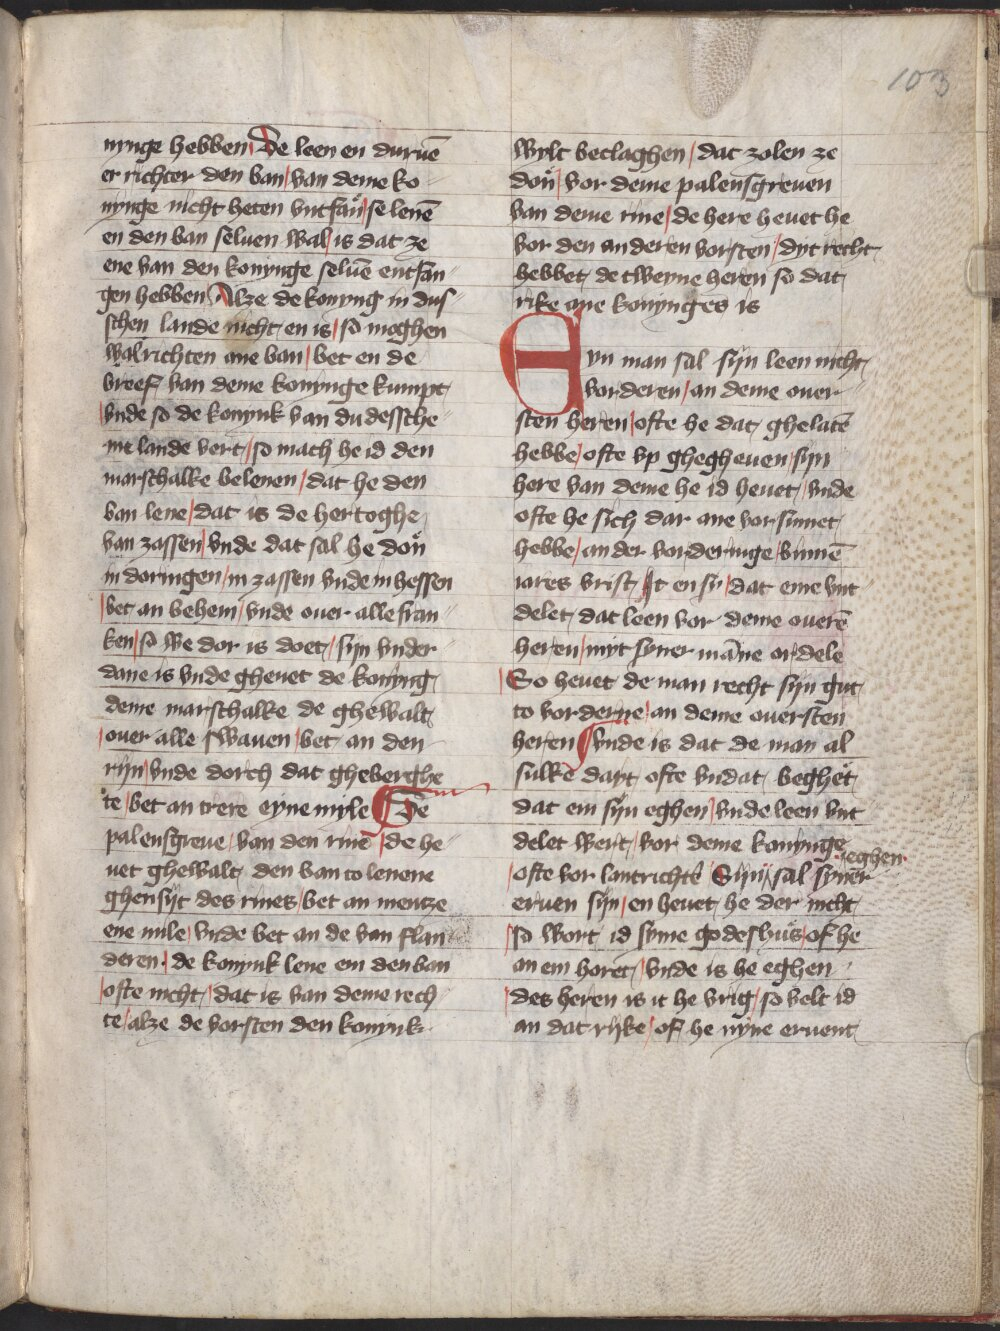 103
nynge hebben De leen en duruē
er richter den ban / van deme ko
nynge nicht heten vntfan / se lenē
en den ban seluen wal / is dat ze
ene van den konynge seluē entfan
gen hebben Alze de konyng in dus
schen lande nicht en is / so moghen
wal richten ane ban / bet en de
breef van deme konynge kumpt
vnde so de konynk van dudessche
me lande vert / so mach he id den
marschalke belenen / dat he den
ban lene / dat is de hertoghe
van zassen / vnde dat sal he don
in doringen / in zassen vnde in hessen
bet an behem / vnde ouer alle fran
ken / so we dor is doet / sijn vnder
dane is vnde gheuet de konyng
deme marschalke de ghewalt
ouer alle swauen / bet an den
rijn / vnde dorch dat gheberghe
te / bet an trere eyne myle De
palensgreue van den rine / de he
uet ghewalt den ban to lenene
ghensijt des rines / bet an mentze
ene mile / vnde bet an de van flan
deren / de konynk lene em den ban
ofte nicht / dat is van deme rech
te / alze de vorsten den konynk
wylt beclaghen / dat zolen ze
don / vor deme palensgreuen
van deme rine / de here heuet he
vor den anderen vorsten / dyt recht
hebbet de tweyne heren so dat
rike ane konynges is
Eyn man sal sijn leen nicht
vorderen / an deme ouer
sten heren / ofte he dat ghelatē
hebbe / ofte vp ghegheuen / sijn
here van deme he id heuet / vnde
ofte he sich dar ane vor sumet
hebbe / an der vorderinge / binnē
iares vrist / it en sy / dat eme vnt
delet dat leen vor deme ouerē
heren / myt syner māne ordele
So heuet de man recht sijn gut
to vorderne / an deme ouersten
heren vnde is dat de man al
sulke dayt ofte vndat beghet
dat em sijn eghen / vnde leen vnt
delet wert / vor deme konynge
ofte vor lantrichtē Sijn eghen sal syner
eruen sijn / en heuet he der nicht
so wort id syme godeshus / of he
an em horet / vnde is he eghen
des heren is it he vrig / so velt id
an dat rijke / of he nyne eruent